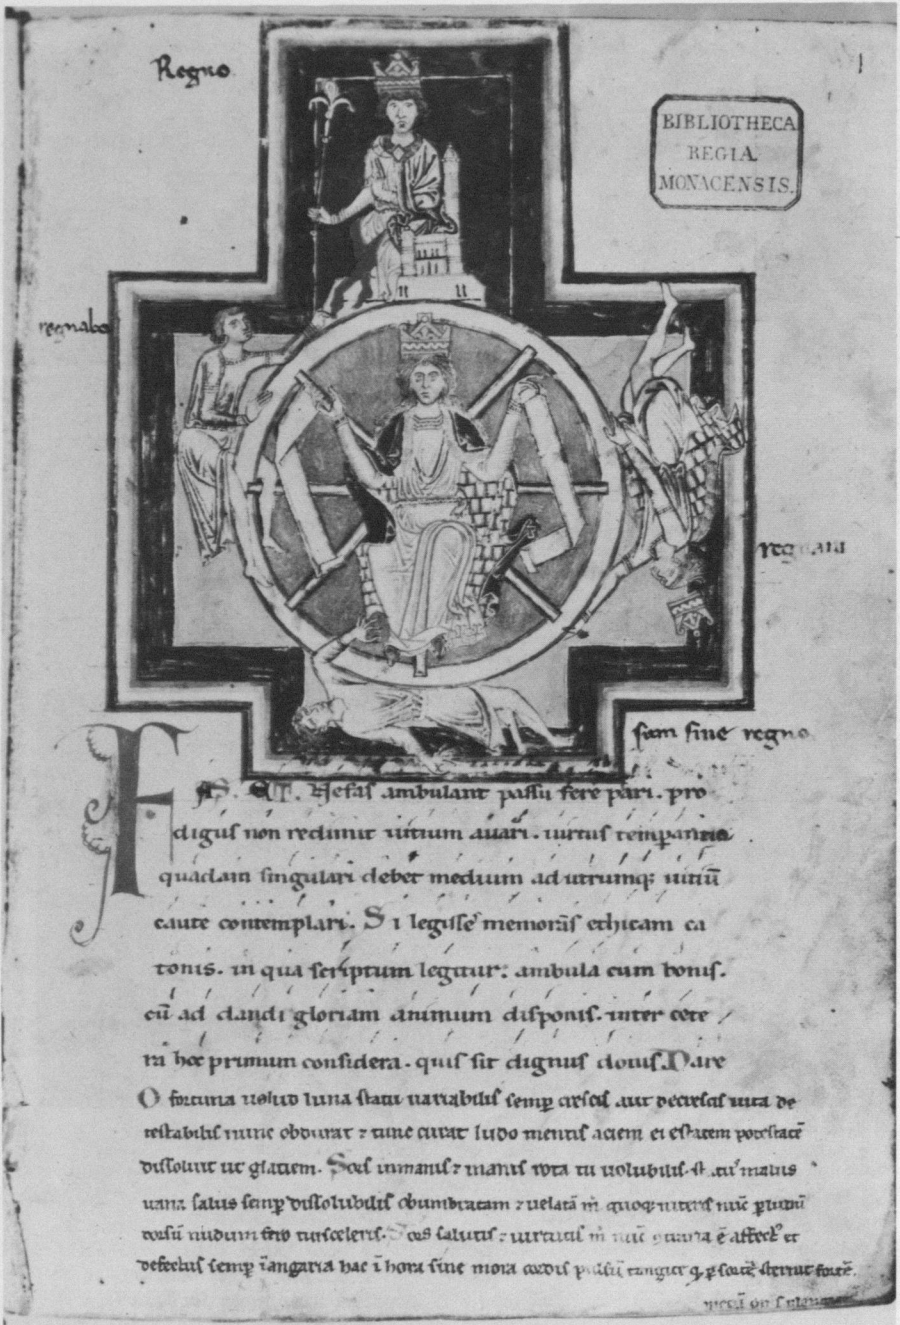 Regno
BIBLIOTHECA
REGIA
MONACENSIS.
regnabo
regnavi
sum sine regno
FAS. ET. Nefas ambulant passu fere pari. pro
digus non redimit uitium auari. uirtus temperantia
quadam singulari debet medium ad utrumq; uitiū
caute contemplari. Si legisse memorās ethicam ca
tonis. in qua scriptum legitur: ambula cum bonis.
cū ad dandi gloriam animum disponis. inter cete
ra hoc primum considera. quis sit dignus donis. Dare
O fortuna uelud luna statu uariabilis semp crescis aut decrescis uita de
testabilis nunc obdurat ⁊ tunc curat ludo mentis aciem egestatem potestatē
dissoluit ut glatiem. Sors inmanis ⁊ inanis rota tu uolubilis. statū malus
uana salus semp dissolubilis obumbratam ⁊ uelatā m quoq; niteris nūc p ludū
dorsū nudum fero tui sceleris. Sors salutis ⁊ uirtutis m nūc
defectus semp ī angaria hac ī hora sine mora cordis pulsū tangite q p sortē sternit fortē.